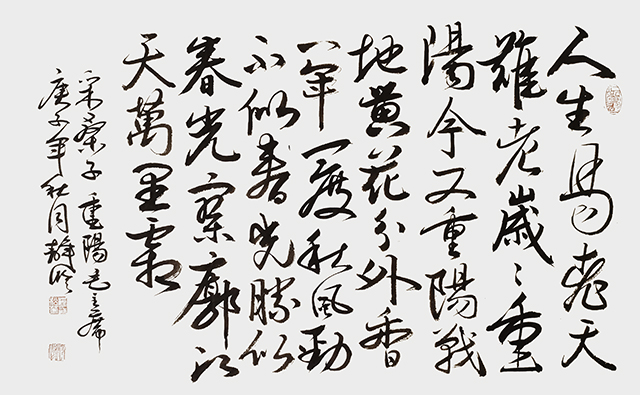 人生易老天
難老歲々重
陽今又重陽戰
地黄花分外香
一年一度秋風勁
不似春光勝似
春光寥廓江
天萬里霜
采桑子重陽毛主席
庚子年秋月靜